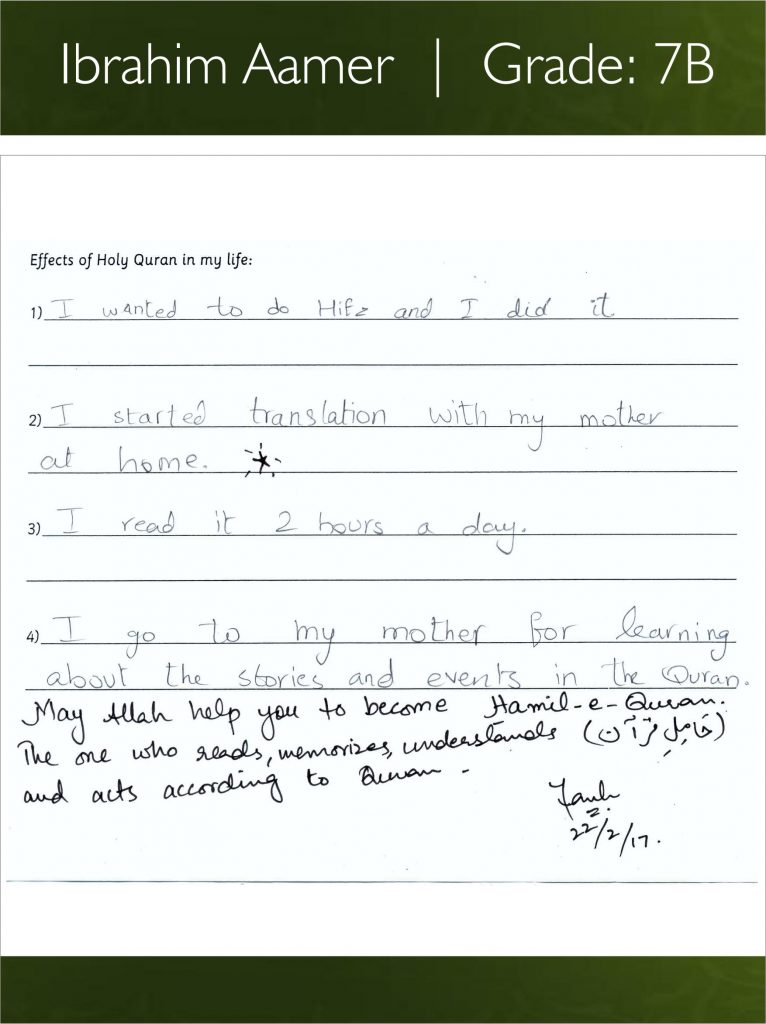 Ibrahim Aamer | Grade: 7B
Effects of Holy Quran in my life:
1) I wanted to do Hifz and I did it
2) I started translation with my mother
at home.
3) I read it 2 hours a day.
4) I go to my mother for learning
about the stories and events in the Quran.
May Allah help you to become Hamil-e-Quran.
The one who reads, memorizes, understands (حَامِلِ قرآن)
and acts according to Quran -
22/2/17.